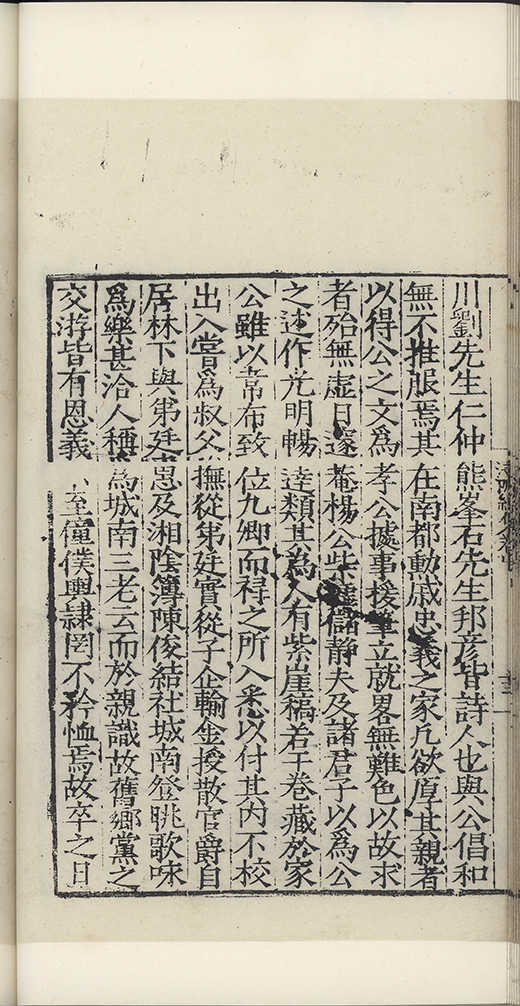 川劉先生仁仲熊峯石先生邦彦皆詩人也與公倡和
無不推服焉其在南都勳戚忠義之家凡欲厚其親者
以得公之文為孝公據事援筆立就畧無難色以故求
者殆無虛日邃菴楊公柴墟儲靜夫及諸君子以為公
之述作光明暢達類其為人有紫崖稿若干卷藏於家
公雖以韋布致位九卿而祿之所入悉以付其內不校
出入嘗為叔父撫從弟廷實從子企輪金授散官爵自
居林下與弟廷思及湘陰簿陳俊結社城南登眺歌咏
為樂甚洽人稱為城南三老云而於親識故舊鄉黨之
交游皆有恩義至僮僕輿隸罔不矜恤焉故卒之日